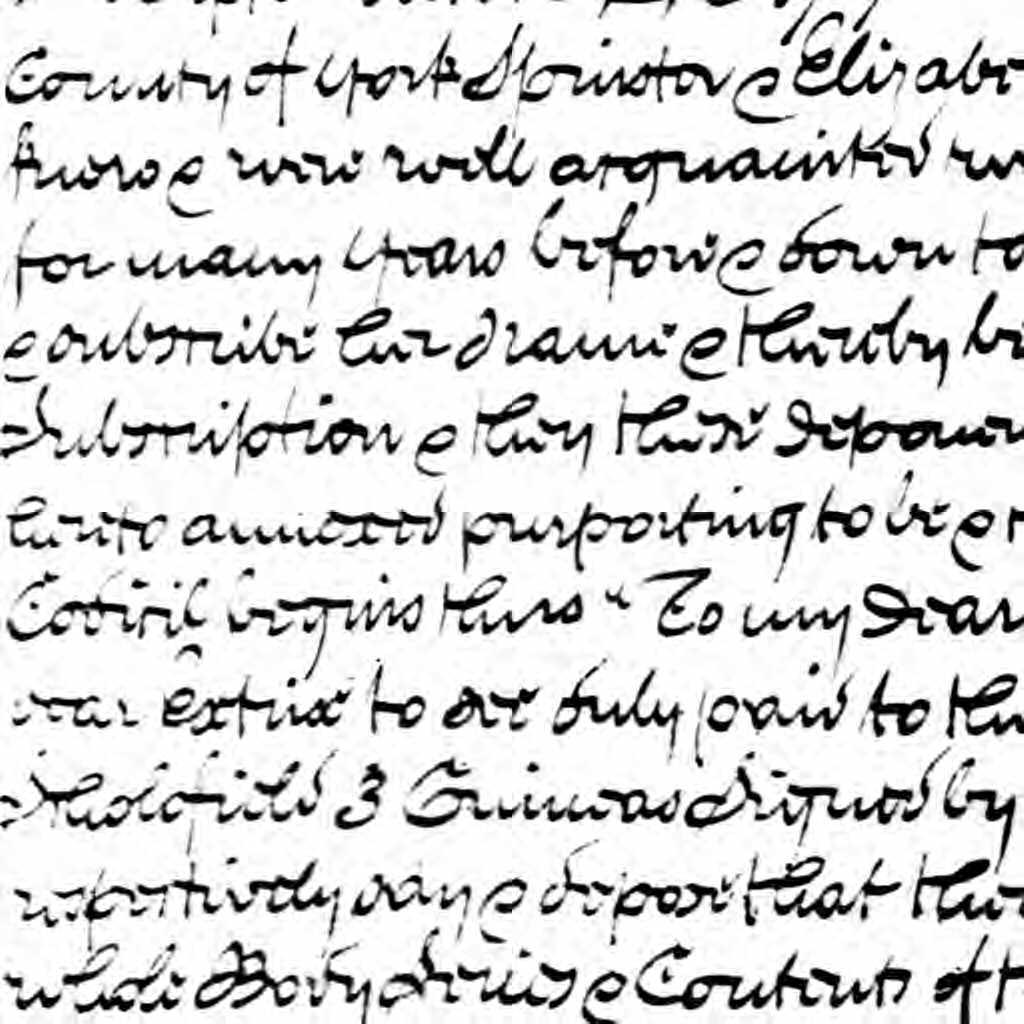 County of York Spinster & Elizabe
knew & were well acquainted w
for many years before & down to
& subscribe her name & thereby be
Subscription & they these deponen
hereto annexed purporting to be & t
Codicil begins thus "To my dear
dear Extrix to see duly paid to the
Sholdfield 3 Guineas Signed by
respectively say & depose that the
whole Body Series & Contents of t